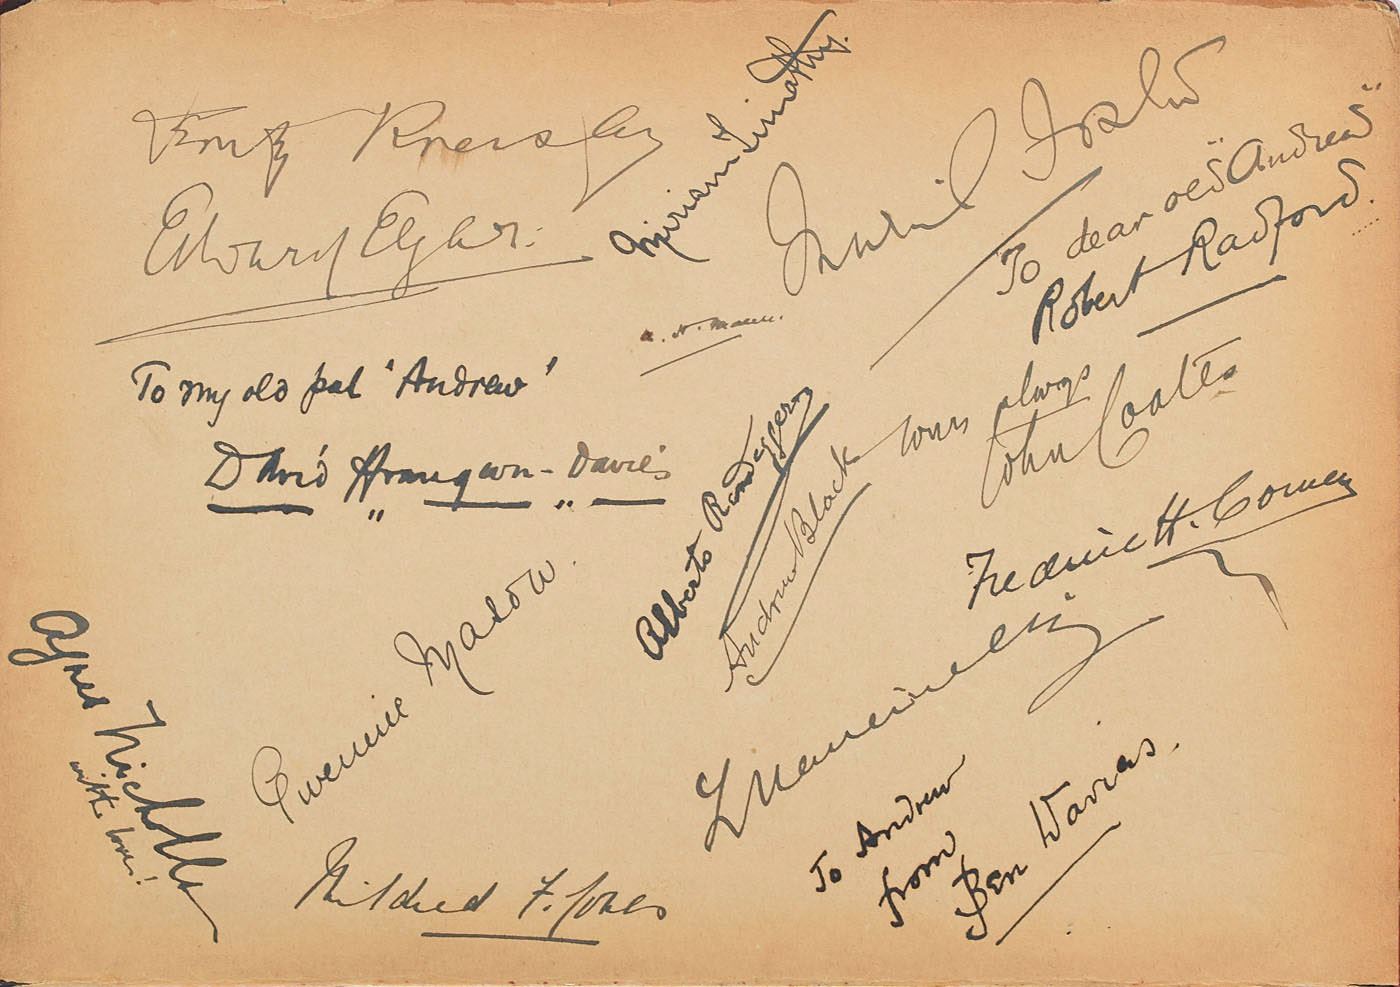 Fritz Kreisler
Edward Elgar.
Miriam Timothy.
Muriel Foster
To dear old "Andrew"
Robert Radford.
A. H. Mann.
To my old pal 'Andrew'
David Ffrangcon-Davies
Alberto Randegger
Andrew Black
Yours always
John Coates
Frederic H. Cowen
L Mancinelli
Gwennie Mason.
Agnes Nicholls
with love!
Mildred F. Jones
To Andrew
from
Ben Davies.